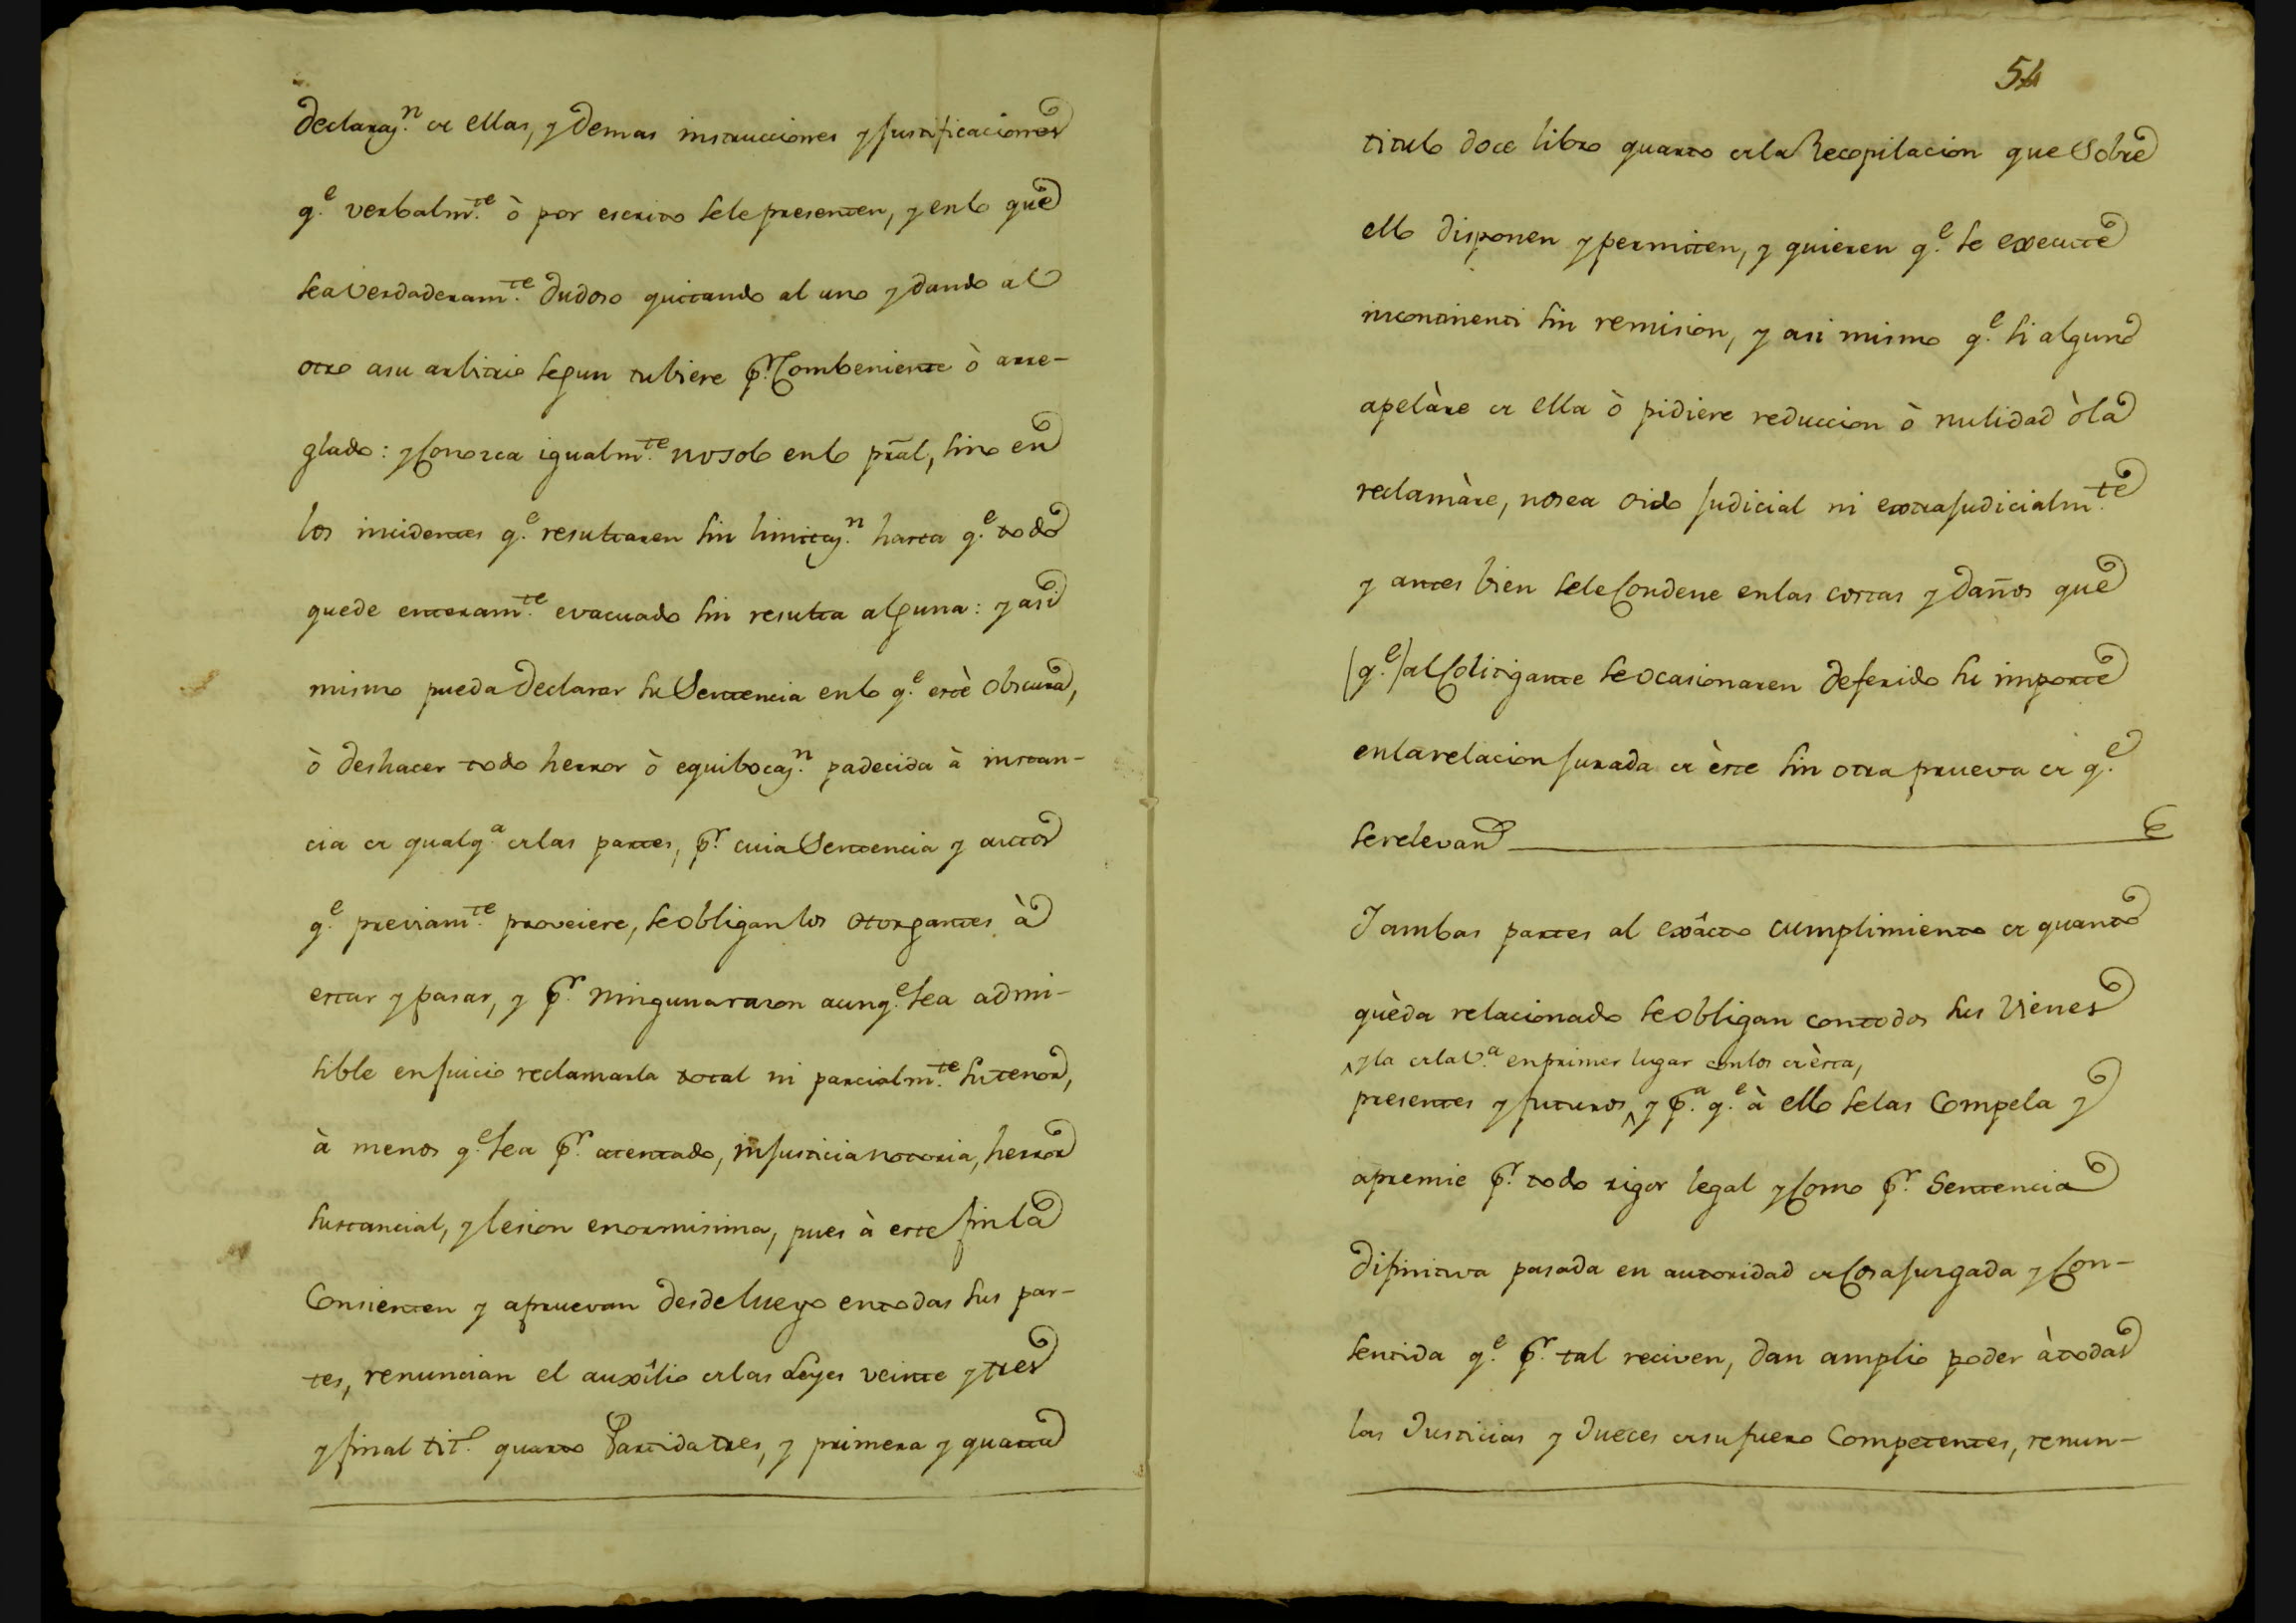 declaraz.n de ellas, y demas instrucciones y justificaciones
q.e verbalm.te ò por escrito sele presenten, y enlo que
sea verdaderam.te dudoso quitando al uno y dando al
otro asu arbitrio segun tubiere p.r Combeniente ò arre-
glado: y Conozca igualm.te nosolo enlo pral, sino en
los incidentes q.e resultaren sin limitaz.n hasta q.e todo
quede enteram.te evacuado sin resulta alguna: y asi
mismo pueda declarar su Sentencia enlo q.e estè obscura,
ò deshacer todo herror ò equibocaz.n padecida à instan-
cia de qualq.a delas partes, p.r cuia Sentencia y autos
q.e previam.te proveiere, seobligan los otorgantes à
estar y pasar, y p.r ningunarazon aunq.e sea admi-
sible enjuicio reclamarla total ni parcialm.te su tenor,
à menos q.e sea p.r atentado, injusticia notoria, herror
sustancial, y lesion enormisima, pues à este fin la
Consienten y apruevan desdeluego entodas sus par-
tes, renuncian el auxîlio delas Leyes veinte y tres
y final tit.l quarto Partida tres, y primera y quarta
54
titulo doce libro quarto dela Recopilacion que Sobre
ello disponen y permiten, y quieren q.e se execute
incontinenti sin remision, y asi mismo q.e si alguno
apelàre de ella ò pidiere reduccion ò nulidad ò la
reclamàre, nosea oido judicial ni extrajudicialm.te
y antes bien sele Condene enlas costas y daños que
(q.e) al Colitigante se ocasionaren deferido su importe
enlarelacion jurada de èste sin otra prueva de q.e
serelevan
Y ambas partes al exâcto cumplimiento de quanto
quèda relacionado seobligan contodos sus Vienes
y la dela V.a enprimer lugar conlos de èsta,
presentes y futuros, y p.a q.e à ello selas Compela y
apremie p.r todo rigor legal y Como p.r Sentencia
difinitiva pasada en autoridad de Cosa juzgada y Con-
sentida q.e p.r tal reciven, dan amplio poder à todas
las Justicias y Jueces desu fuero Competentes, renun-